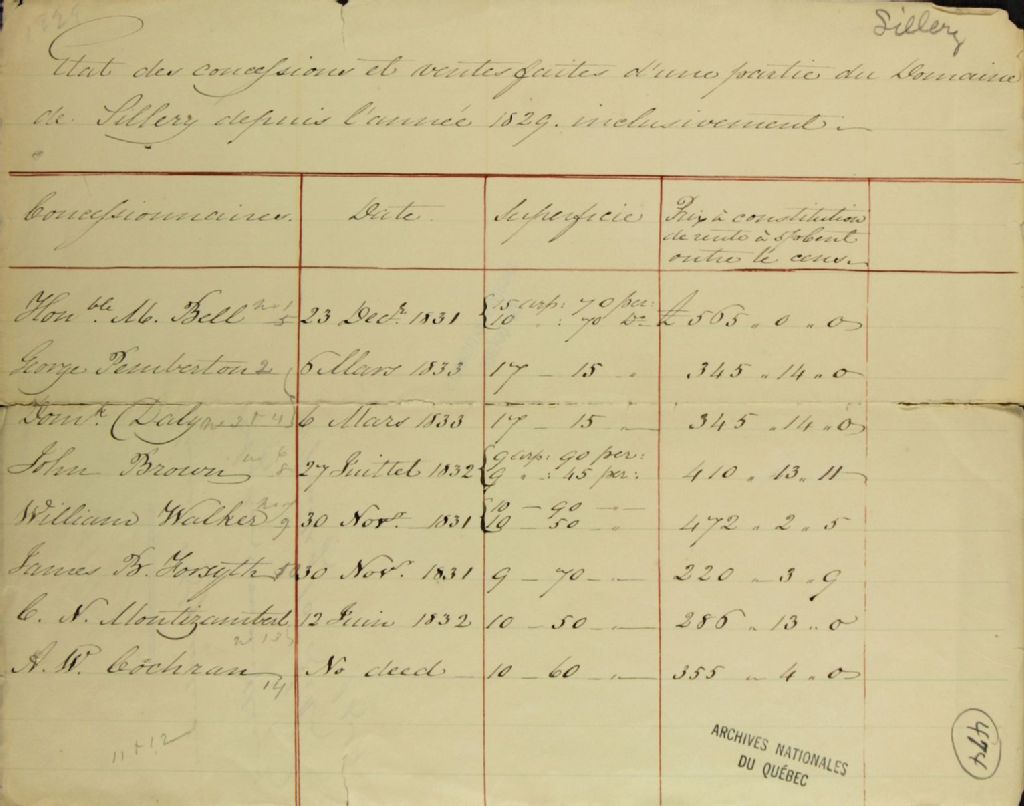 Sillery
Etat des concessions et ventes faites d'une partie du Domaine
de Sillery depuis l'année 1829. inclusivement.
Concessionnaires. Date. Superficie Prix à constitution
de rente à 5 p cent
outre le cens.
Honble. M. Bell 23 Decr. 1831 {15 arp: 70 per: £ 505 „ 0 „ 0
{10 „ : 70 Do
George Pemberton 2 6 Mars 1833 17 — 15 „ 345 „ 14 „ 0
Domk. Daly 6 Mars 1833 17 — 15 „ 345 „ 14 „ 0
John Brown 27 Juillet 1832 {9 arp: 90 per: 410 „ 13 „ 11
{9 „ : 45 per:
William Walker 30 Novr. 1831 {10 — 90 — 472 „ 2 „ 5
{10 — 50 — „
James B. Forsyth 10 30 Novr. 1831 9 — 70 — „ 220 „ 3 „ 9
C. N. Montizambert 12 Juin 1832 10 — 50 — „ 286 „ 13 „ 0
A. W. Cochran 14 No deed 10 — 60 — „ 355 „ 4 „ 0
11 & 12
ARCHIVES NATIONALES
DU QUÉBEC
474